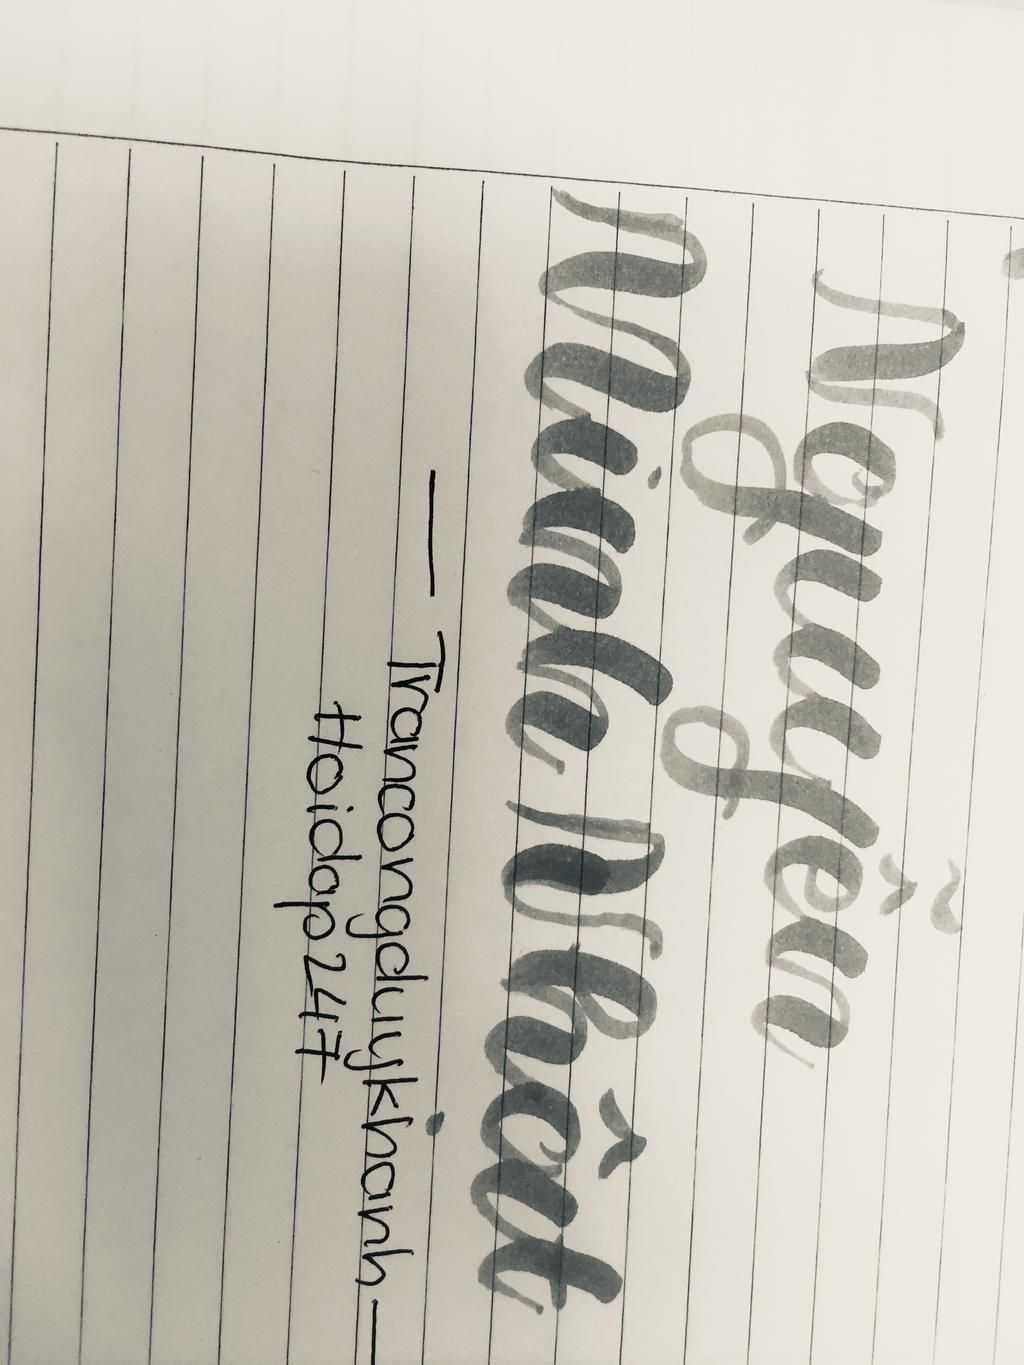 Nguyễn
Minh Nhật
— Trancongduykhanh —
Hoidap247